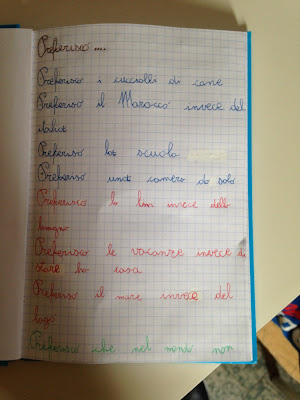 Preferisco ....
Preferisco i cuccioli di cane
Preferisco il Marocco invece del
Preferisco la scuola
Preferisco una camera da solo
Preferisco la invece della
Preferisco le vacanze invece di
stare ha casa
Preferisco il mare invece del
lago
Preferisco che nel mondo non